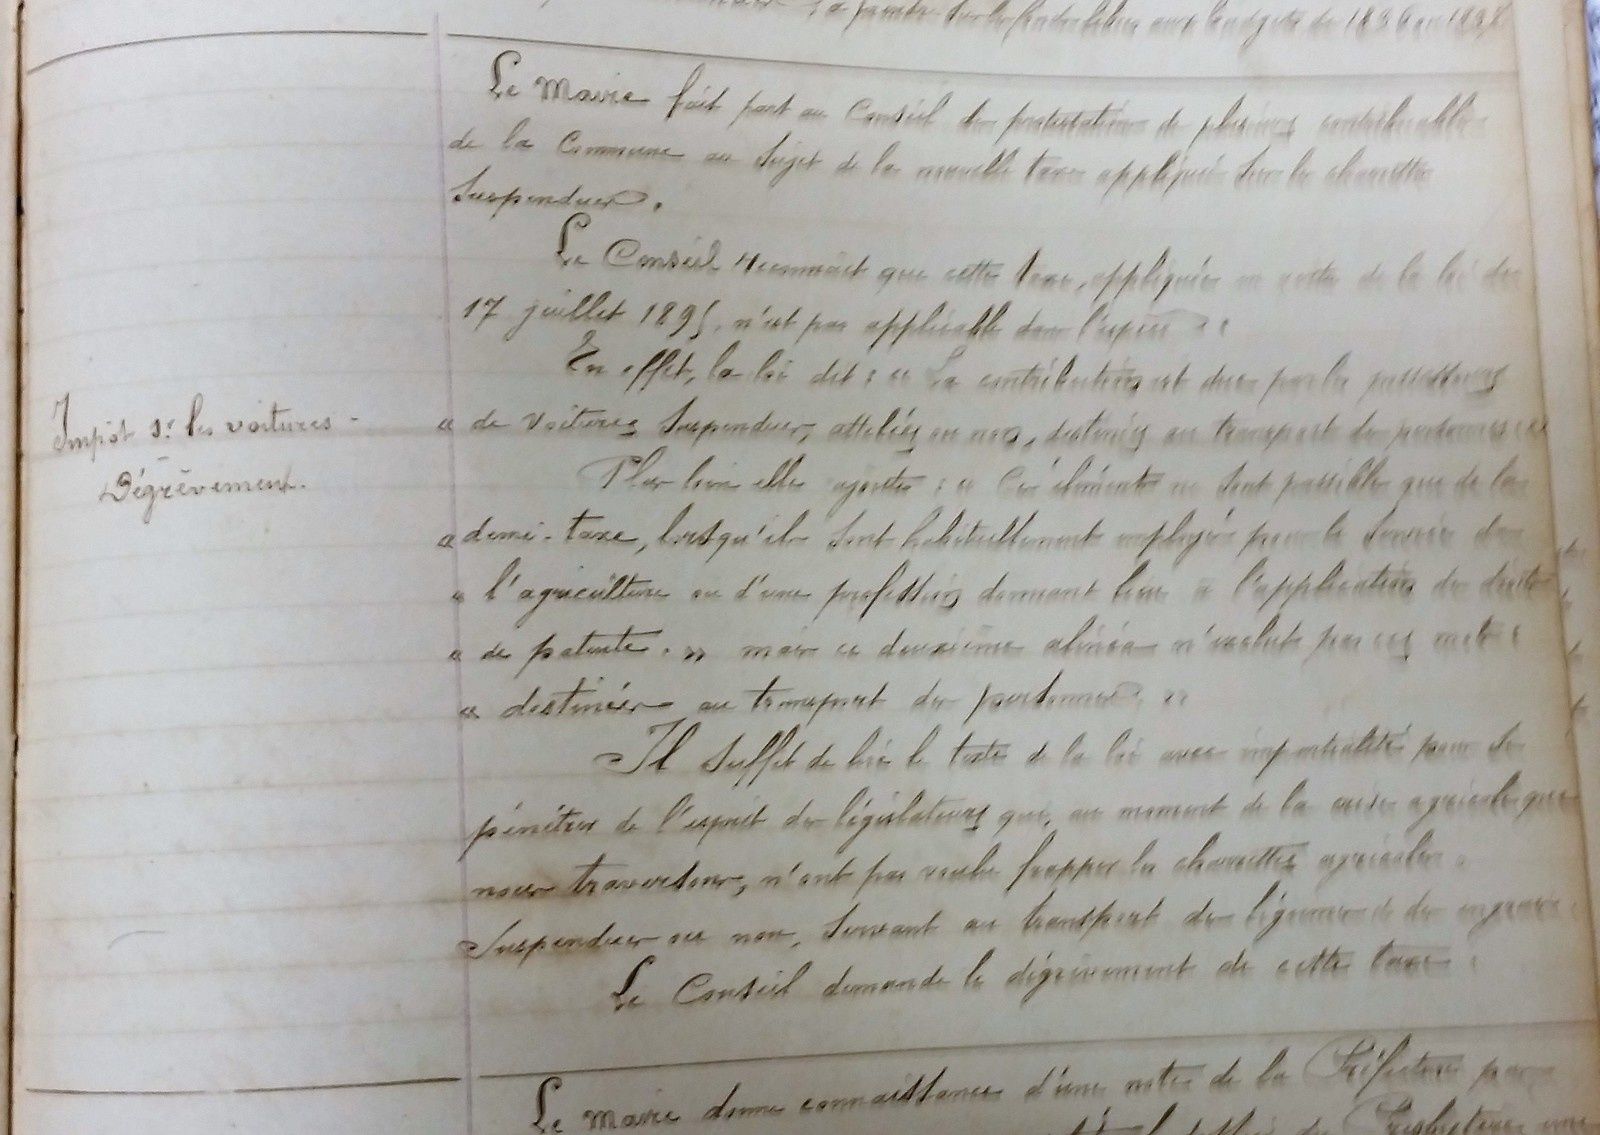 aux budgets de 1896 et 189
Le Maire fait part au Conseil des protestations de plusieurs contribuables
de la Commune au sujet de la nouvelle taxe appliquée sur les charrettes
suspendues.
Le Conseil reconnait que cette taxe, appliquée en vertu de la loi du
17 juillet 1895, n'est pas applicable dans l'espèce :
En effet, la loi dit : « La contribution est due par les possesseurs
Impôt sr les voitures -
Dégrèvement.
« de voitures suspendues, attelées ou non, destinées au transport des personnes »
Plus loin elle ajoute : « Ces éléments ne sont passibles que de la
« demi-taxe, lorsqu'ils sont habituellement employés pour le service de
« l'agriculture ou d'une profession donnant lieu à l'application du droit
« de patente. » mais ce deuxième alinéa n'exclut pas ces mots :
« destinées au transport des personnes. »
Il suffit de lire le texte de la loi avec impartialité pour se
pénétrer de l'esprit des législateurs qui, au moment de la crise agricole que
nous traversons, n'ont pas voulu frapper les charrettes agricoles,
suspendues ou non, servant au transport des légumes & des engrais.
Le Conseil demande le dégrèvement de cette taxe.
Le Maire donne connaissance d'une note de la Préfecture par
du Presbytère une